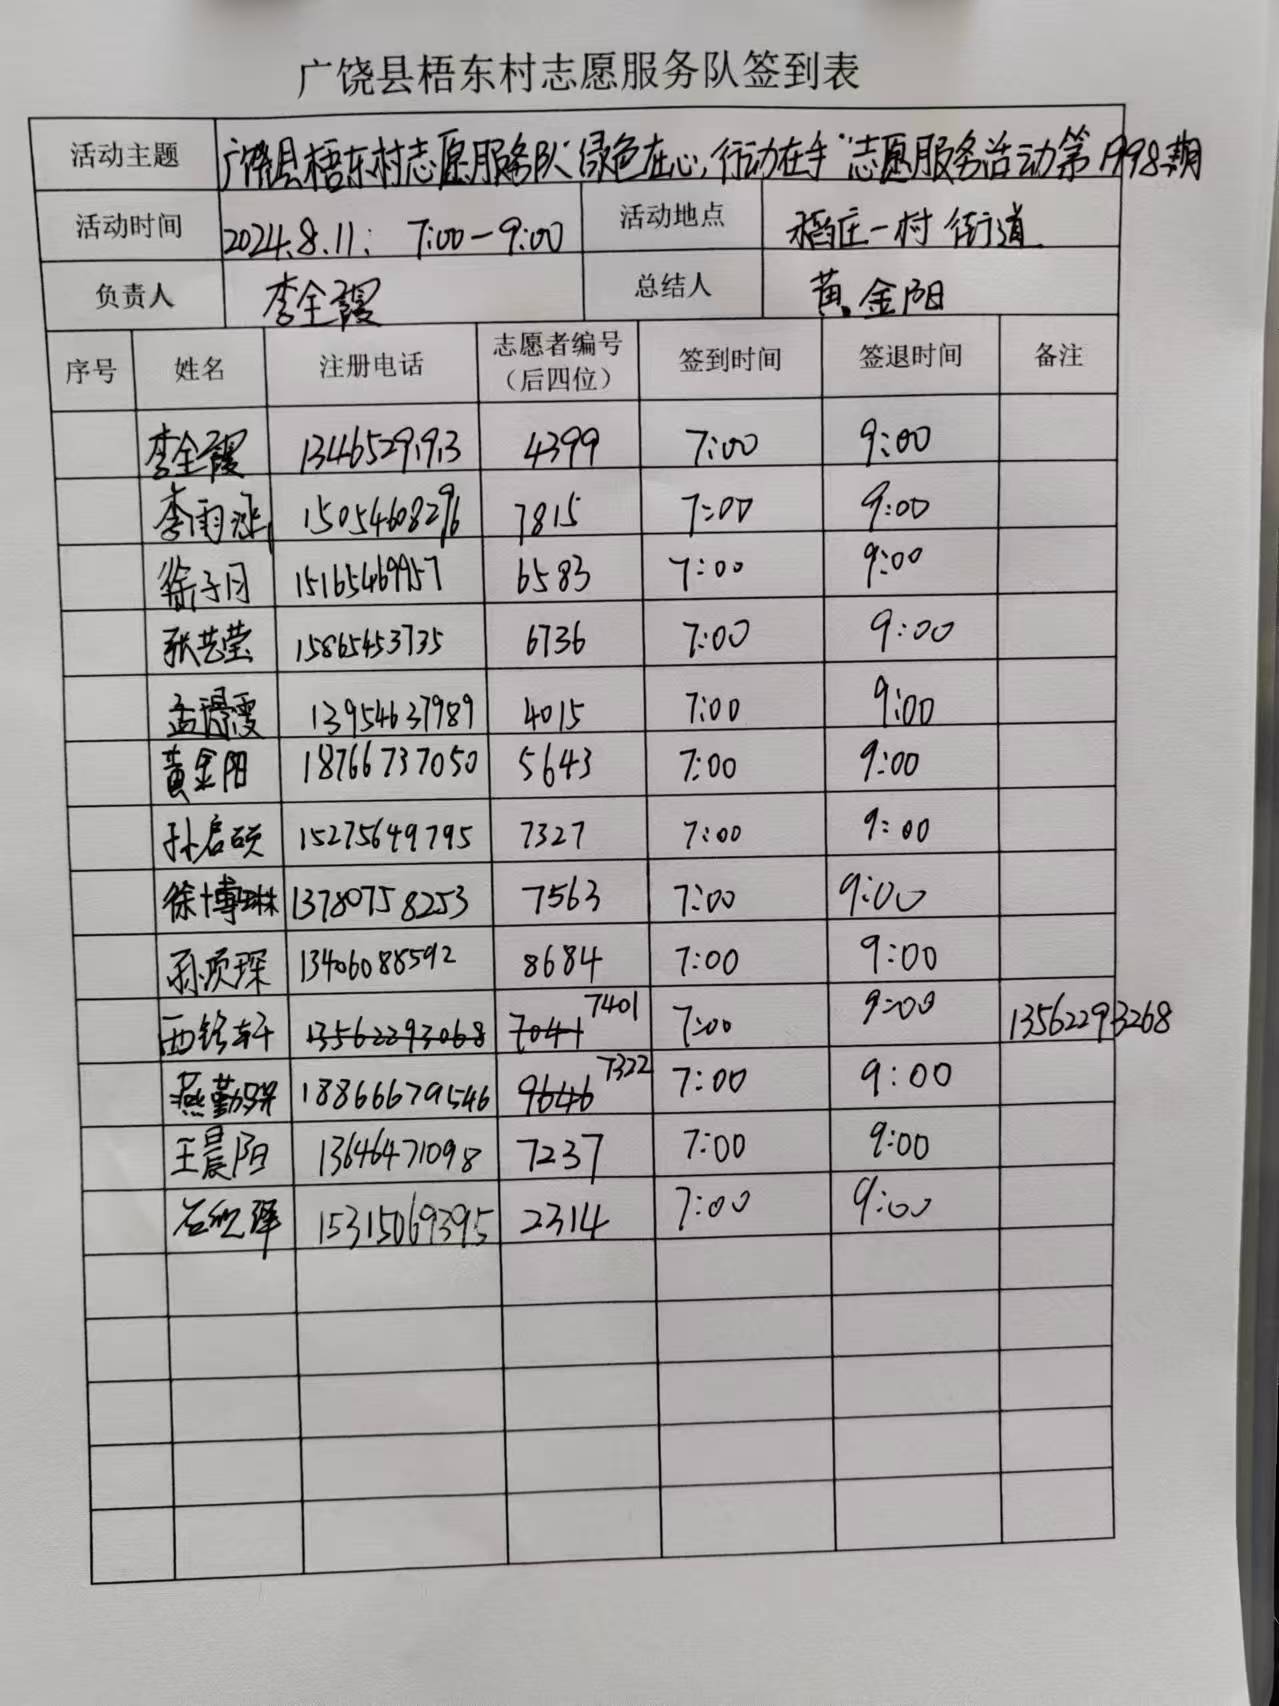 广饶县梧东村志愿服务队签到表
活动主题 广饶县梧东村志愿服务队"绿色在心,行动在手"志愿服务活动第1998期
活动时间 2024.8.11: 7:00-9:00 活动地点 稻庄一村街道
负责人 李全霞 总结人 黄金阳
序号 姓名 注册电话 志愿者编号（后四位） 签到时间 签退时间 备注
李全霞 4399 7:00 9:00
李雨泓 15054608296 7815 7:00 9:00
徐子月 15165469957 6583 7:00 9:00
张艺莹 15865453735 6736 7:00 9:00
孟霞 13954637989 4015 7:00 9:00
黄金阳 18766737050 5643 7:00 9:00
孙启硕 15275649795 7327 7:00 9:00
徐博琳 13780758253 7563 7:00 9:00
琛 13406088592 8684 7:00 9:00
西铭轩 13562293068 7041 7401 7:00 9:00 13562293268
燕勤 18866679546 9646 7322 7:00 9:00
王晨阳 13646471098 7237 7:00 9:00
石 泽 15315069395 2314 7:00 9:00